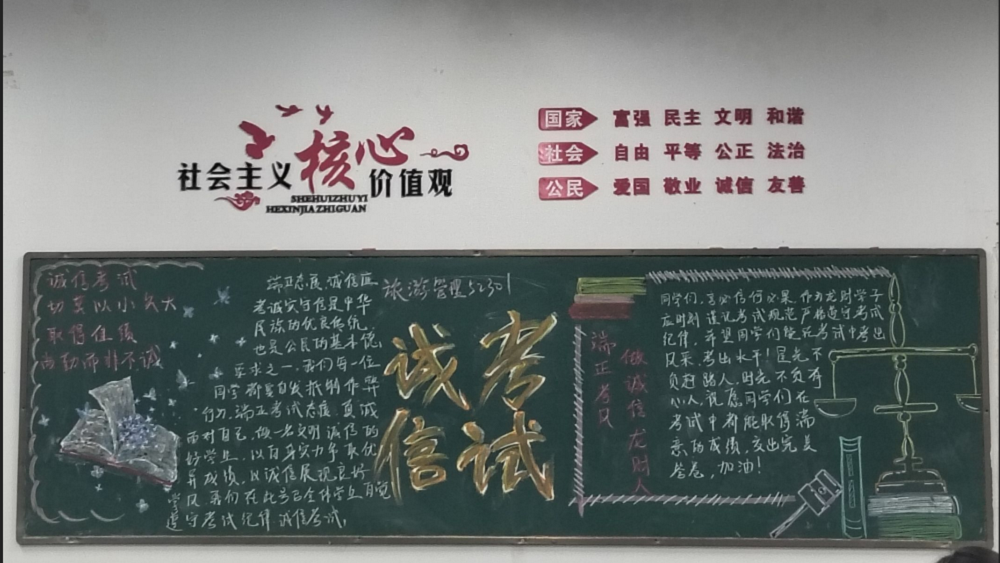 社会主义核心价值观
SHEHUIZHUYI
HEXINJIAZHIGUAN
国家 富强 民主 文明 和谐
社会 自由 平等 公正 法治
公民 爱国 敬业 诚信 友善
诚信考试
切莫以小失大
取得佳绩
尚勤而非不诚
端正态度,诚信应
考诚实守信是中华
民族的优良传统,
也是公民的基本道德
要求之一,我们每一位
同学都要自觉抵制作弊
行为,端正考试态度,真诚
面对自己,做一名文明诚信的
好学生,以自身实力争取优
异成绩,以诚信展现良好
学风,我们在此号召全体学生自觉
遵守考试纪律诚信考试。
旅游管理52301
诚考
信试
端正考风
做诚信龙财人
同学们,言必信行必果,作为龙财学子
应时刻谨记考试规范,严格遵守考试
纪律,希望同学们能在考试中考出
风采,考出水平!星光不
负赶路人,时光不负有
心人,祝愿同学们在
考试中都能取得满
意的成绩,交出完美
答卷,加油!